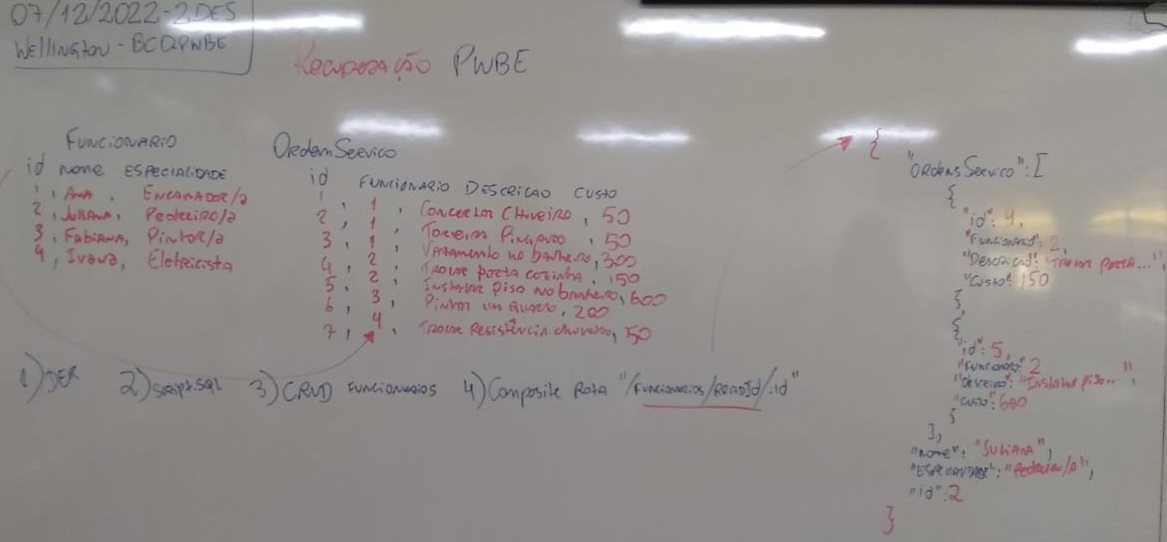 07/12/2022-2DES
Wellington-BCD2PWBE
Recuperação PWBE
Funcionario
id nome ESPECIALIDADE
1, Ana, Encanador/a
2, Juliana, Pedreiro/a
3, Fabiana, Pintor/a
4, Ivana, Eletricista
OrdemServico
id FUNCIONARIO DESCRICAO CUSTO
1, 1, Concertar Chuveiro, 50
2, 1, Torneira Pingando, 50
3, 1, Vazamento no banheiro, 300
4, 2, Trocar porta cozinha, 150
5, 2, Instalar Piso no banheiro, 600
6, 3, Pintar um Quarto, 200
7, 4, Trocar Resistência chuveiro, 50
1) DER 2) script.sql 3) CRUD Funcionarios 4) Composite Rota "/funcionarios/readId/:id"
{
"OrdensServico": [
{
"id": 4,
"Funcionario": 2,
"Descricao": "Trocar Porta..."
"Custo": 150
},
{
"id": 5,
"Funcionario": 2
"Descricao": "Instalar piso...",
"Custo": 600
}
],
"nome": "Juliana",
"ESPECIALIDADE": "Pedreiro/A",
"id": 2
}